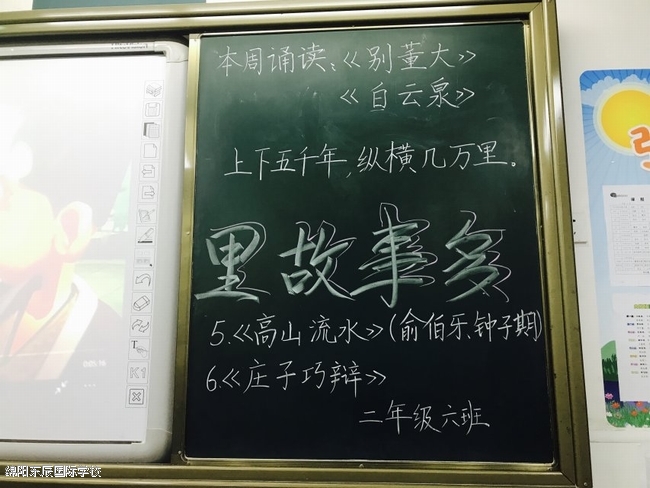 本周诵读:《别董大》
《白云泉》
上下五千年,纵横几万里。
里故事多
5.《高山流水》(俞伯牙、钟子期)
6.《庄子巧辩》
二年级六班
K1
绵阳东辰国际学校